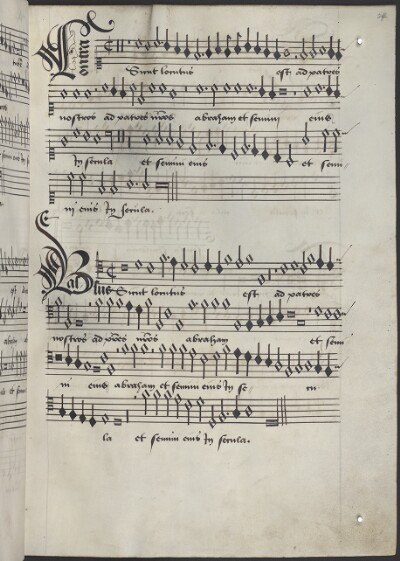 Contra
Sicut locutus est ad patres
nostros ad patres nros abraham et semini eius
In secula et semini eius et semi
ni eius In secula.
Bassus
Sicut locutus est ad patres
nostros ad pres nros abraham et semi
ni eius abraham et semini eius In se cu
la et semini eius In secula.